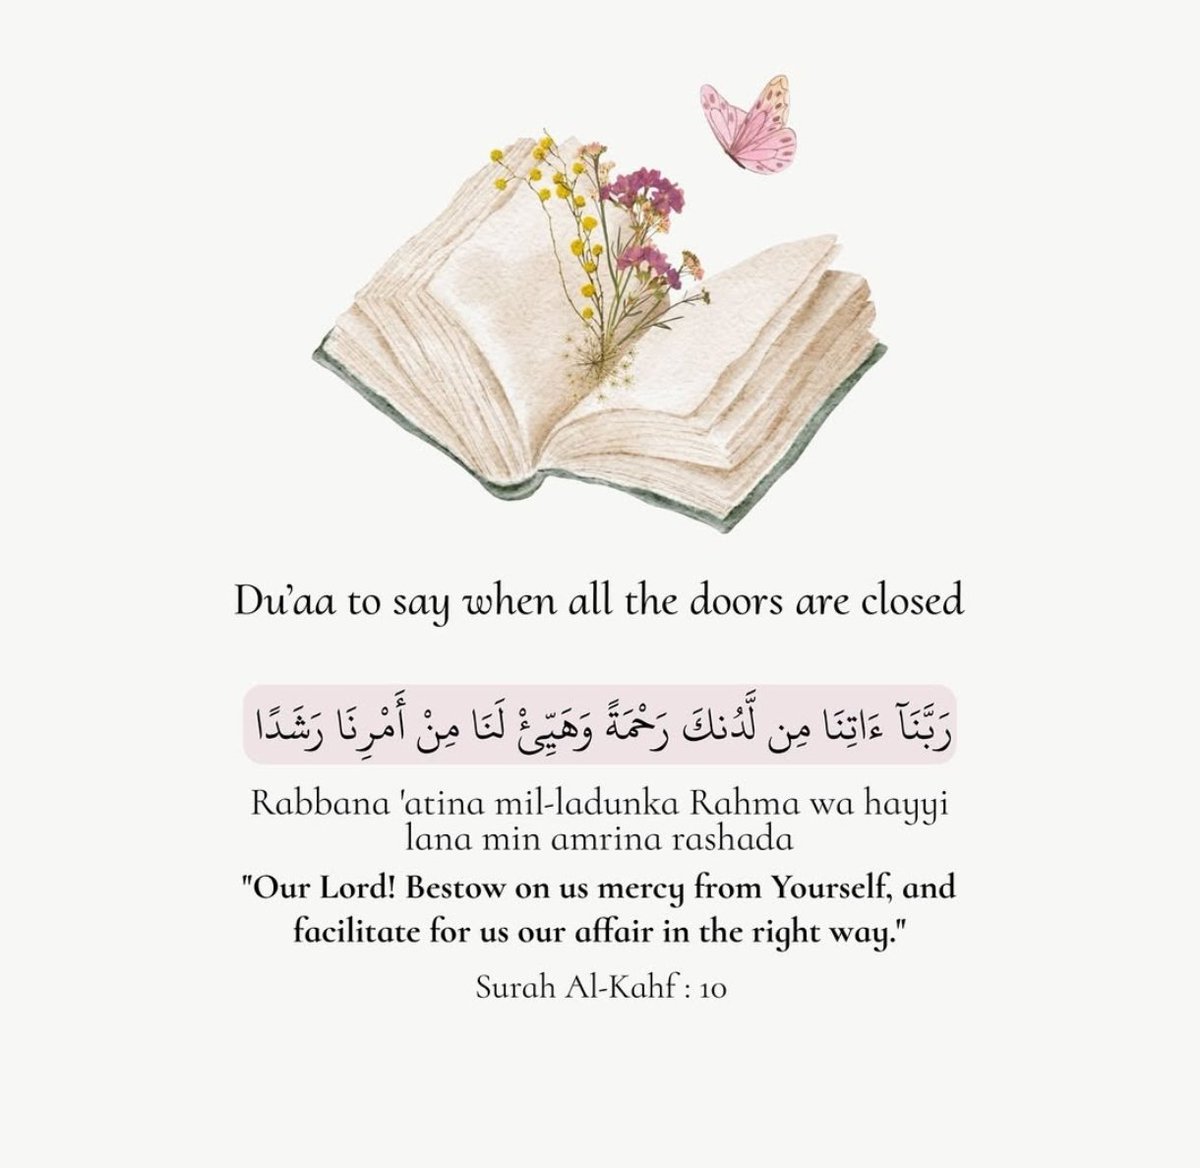 Du’aa to say when all the doors are closed
رَبَّنَآ ءَاتِنَا مِن لَّدُنكَ رَحْمَةً وَهَيِّئْ لَنَا مِنْ أَمْرِنَا رَشَدًا
Rabbana 'atina mil-ladunka Rahma wa hayyi
lana min amrina rashada
"Our Lord! Bestow on us mercy from Yourself, and
facilitate for us our affair in the right way."
Surah Al-Kahf : 10